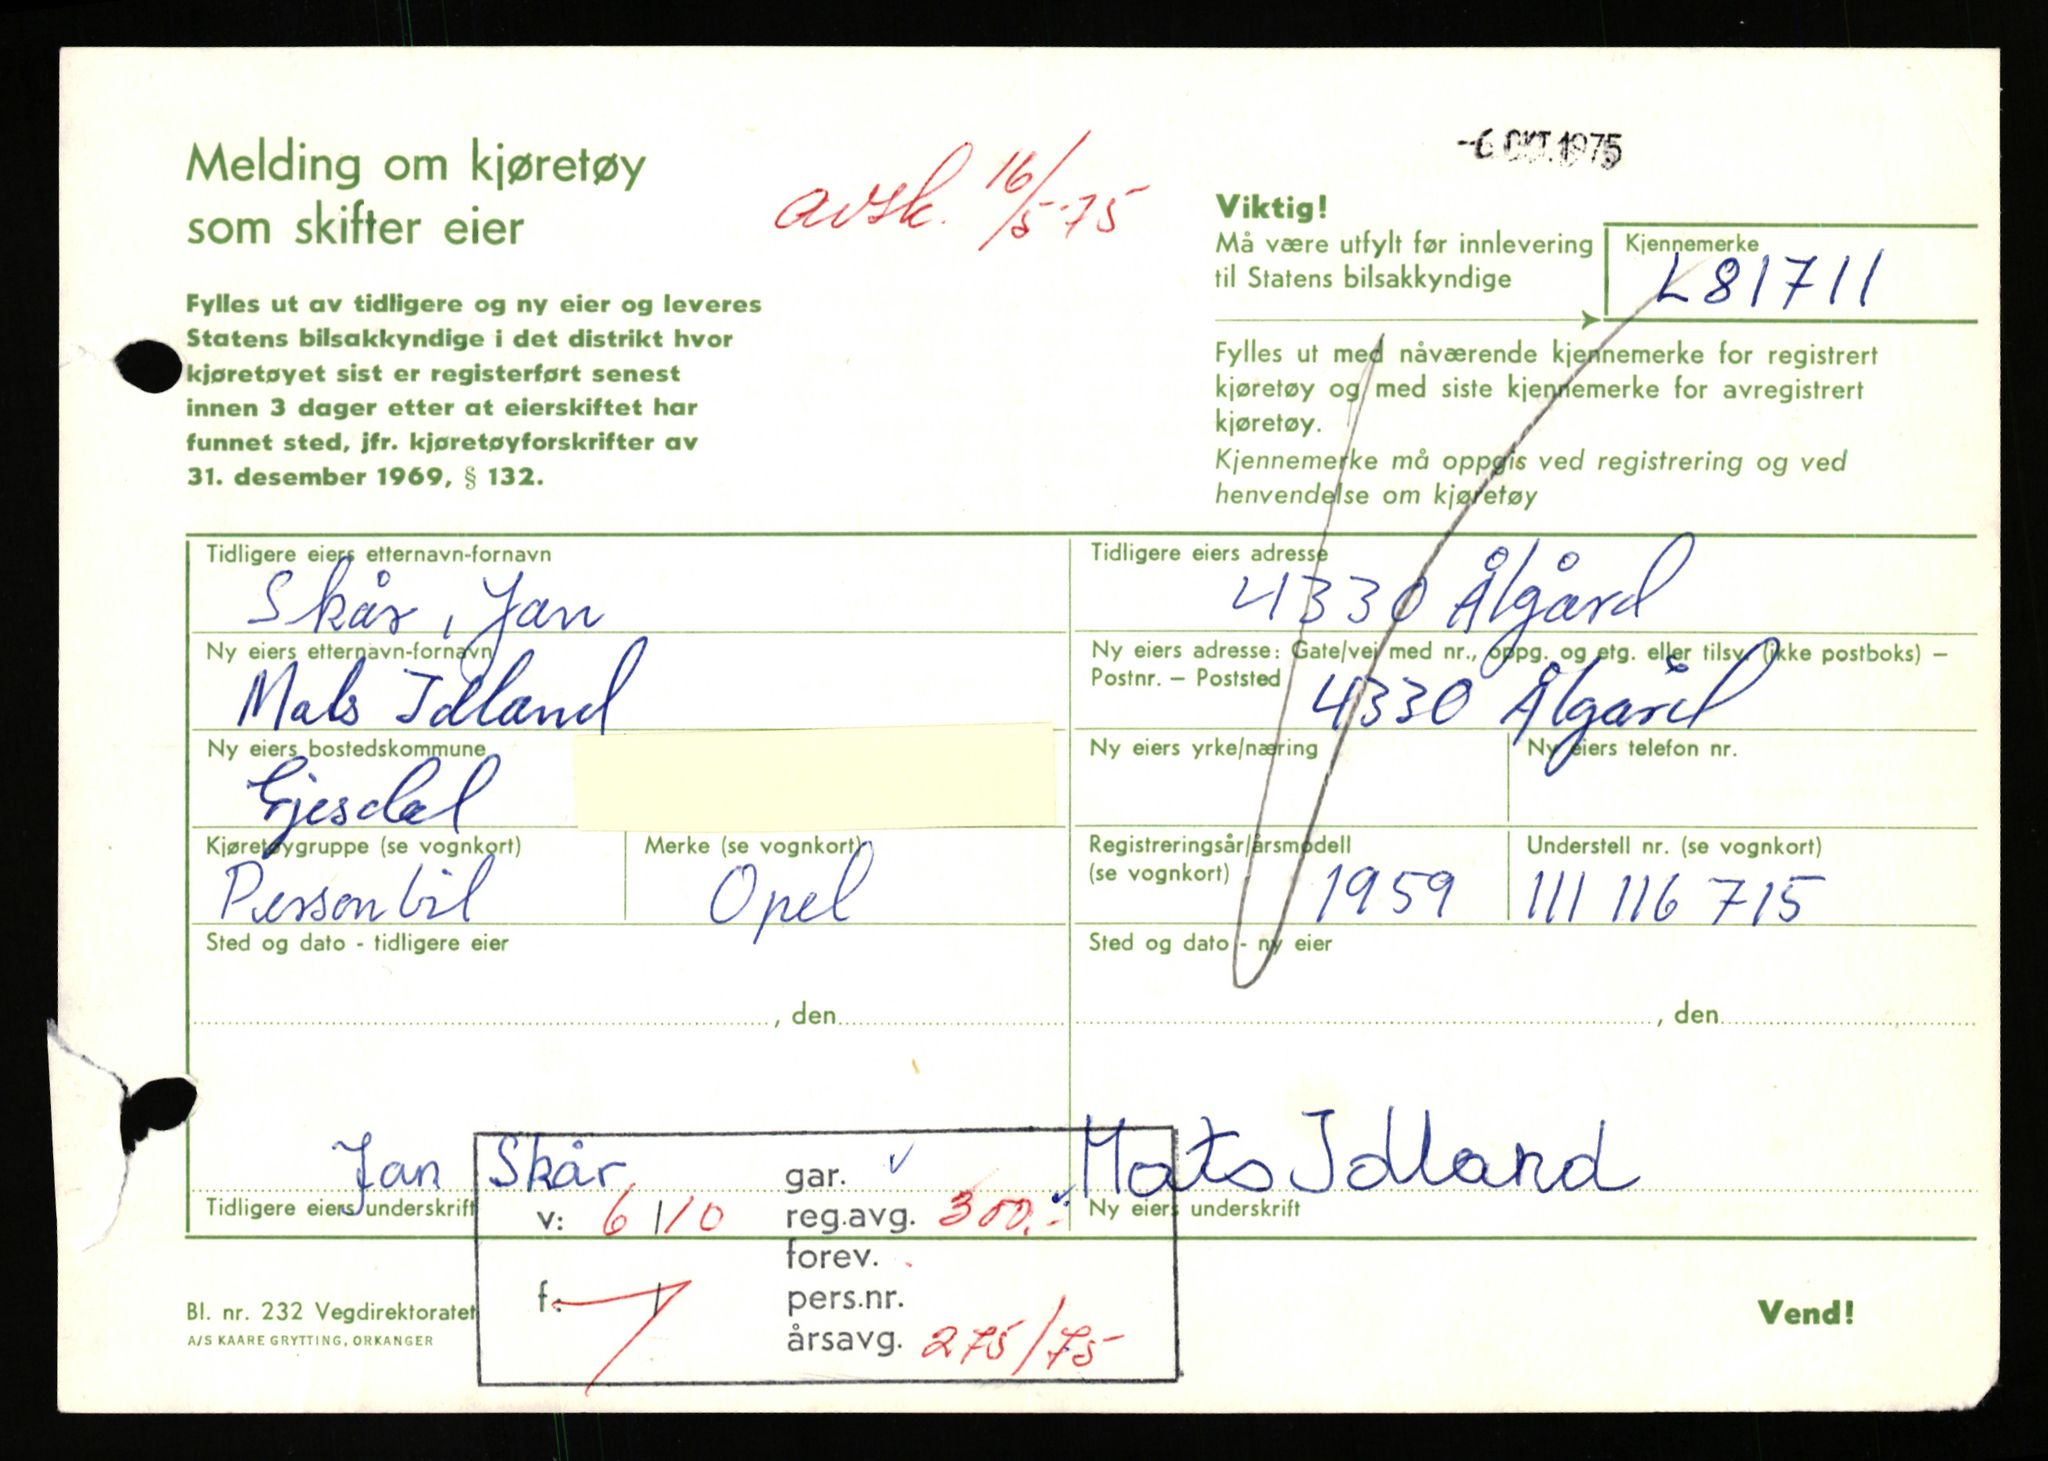 -6 OKT. 1975
Melding om kjøretøy
som skifter eier
avsk. 16/5-75
Fylles ut av tidligere og ny eier og leveres
Statens bilsakkyndige i det distrikt hvor
kjøretøyet sist er registerført senest
innen 3 dager etter at eierskiftet har
funnet sted, jfr. kjøretøyforskrifter av
31. desember 1969, § 132.
Viktig!
Må være utfylt før innlevering
til Statens bilsakkyndige
Kjennemerke
L81711
Fylles ut med nåværende kjennemerke for registrert
kjøretøy og med siste kjennemerke for avregistrert
kjøretøy.
Kjennemerke må oppgis ved registrering og ved
henvendelse om kjøretøy
Tidligere eiers etternavn-fornavn
Skår, Jan
Tidligere eiers adresse
4330 Ålgård
Ny eiers etternavn-fornavn
Mats Idland
Ny eiers adresse: Gate/vei med nr., oppg. og etg. eller tilsv. (ikke postboks) –
Postnr. – Poststed
4330 Ålgård
Ny eiers bostedskommune
Gjesdal
Ny eiers yrke/næring
Ny eiers telefon nr.
Kjøretøygruppe (se vognkort)
Personbil
Merke (se vognkort)
Opel
Registreringsår/årsmodell
(se vognkort)
1959
Understell nr. (se vognkort)
111 116 715
Sted og dato - tidligere eier
Sted og dato - ny eier
, den
, den
Jan Skår
Mats Idland
Tidligere eiers underskrift
Ny eiers underskrift
gar.
v: 6/10
reg.avg. 300.-
forev.
f:
pers.nr.
årsavg. 275/75
Bl. nr. 232 Vegdirektoratet
A/S KAARE GRYTTING, ORKANGER
Vend!